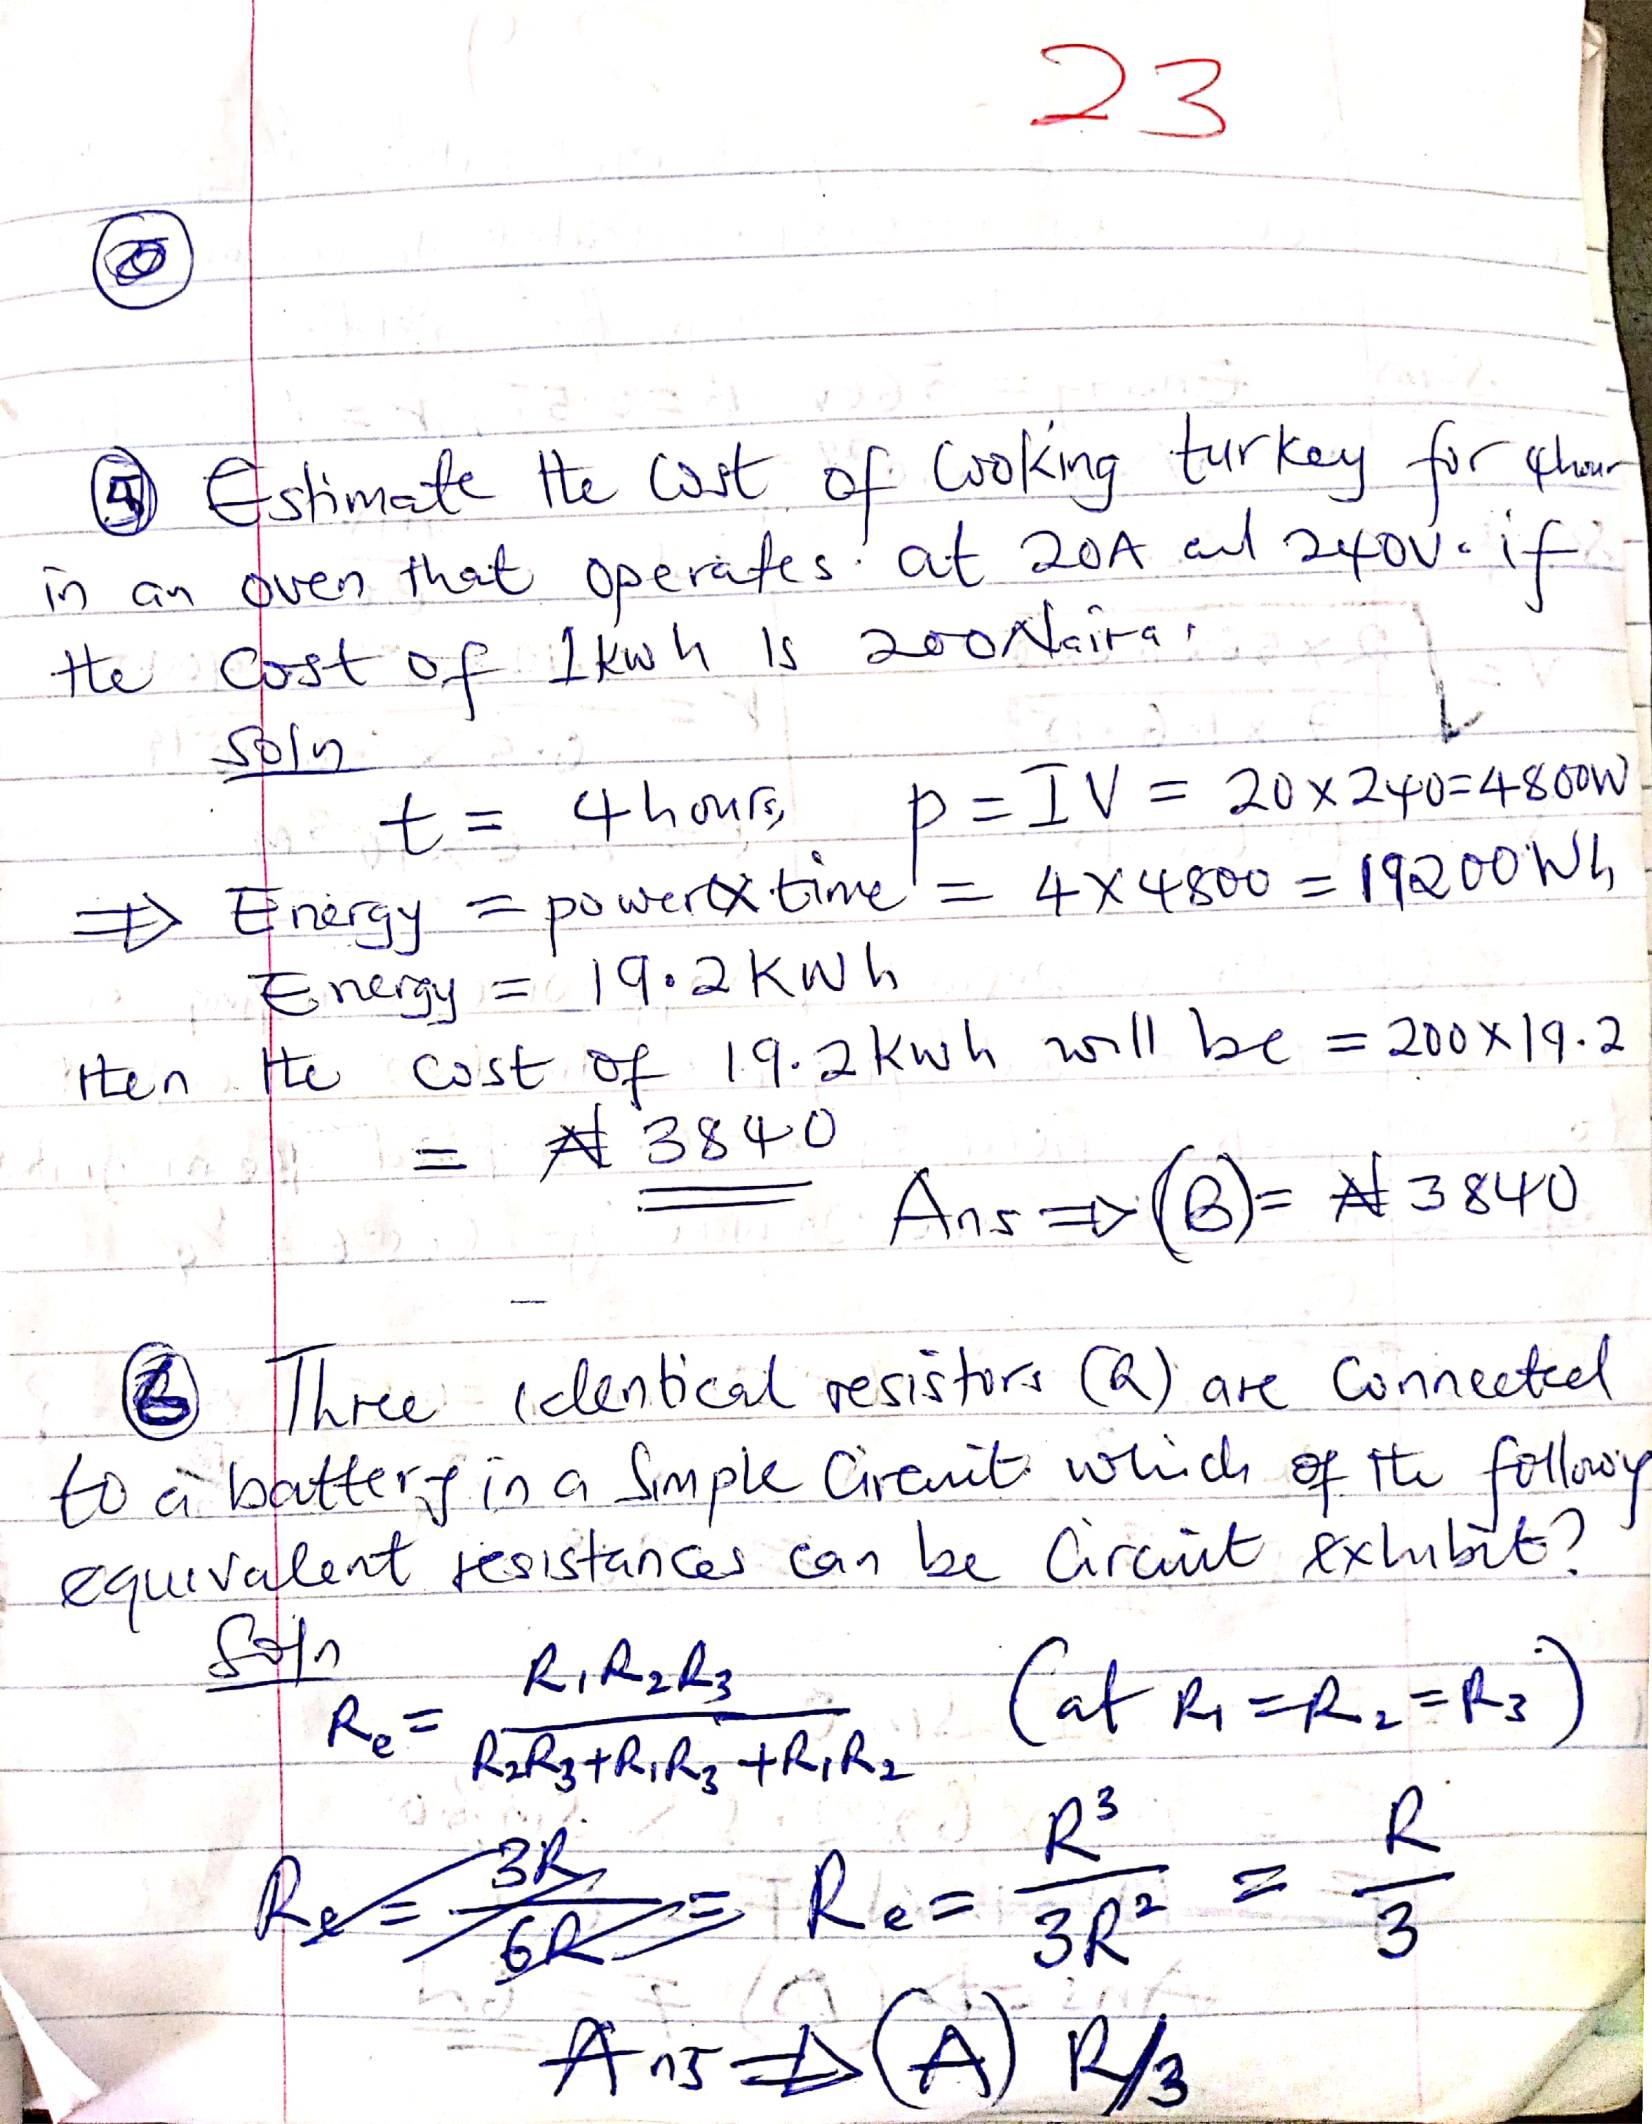 23
⑤ Estimate the Cost of Cooking turkey for 4hour
in an oven that operates at 20A and 240V. if
the cost of 1kwh is 200Naira.
Soln
t = 4hours, p = IV = 20x240=4800W
⇒ Energy = power x time = 4x4800 = 19200Wh
Energy = 19.2KWh
then the cost of 19.2kwh will be = 200x19.2
= ₦ 3840
Ans ⇒ (B) = ₦ 3840
⑥ Three identical resistors (R) are Connected
to a battery in a Simple Circuit which of the following
equivalent resistances can be Circuit exhibit?
Soln
Re = R1R2R3 / R2R3+R1R3+R1R2 (at R1=R2=R3)
Re = 3R/6R = Re = R³/3R² = R/3
Ans ⇒ (A) R/3